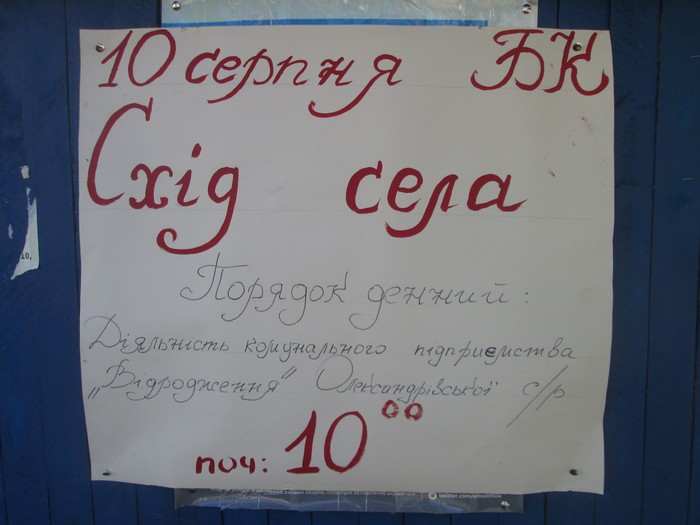 10 серпня БК
Схід села
Порядок денний:
Діяльність комунального підприємства
„Відродження" Олександрівської с/р
поч: 10⁰⁰